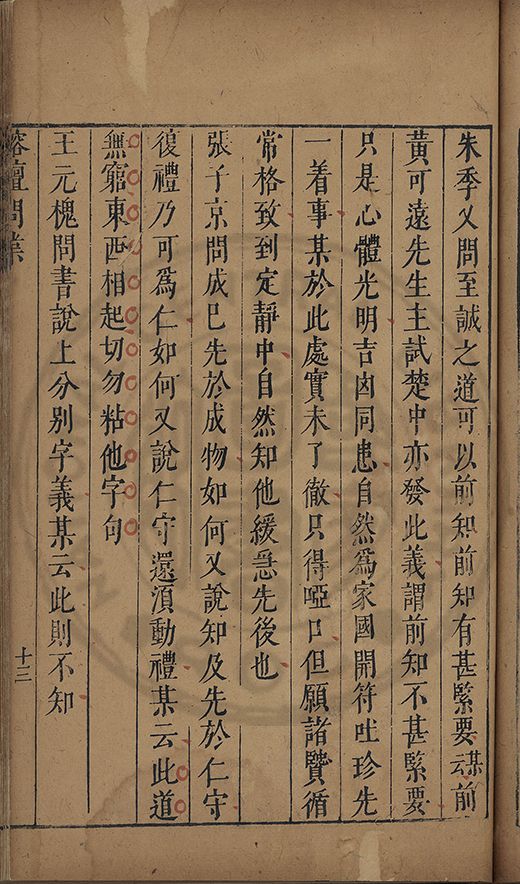 朱季乂問至誠之道可以前知前知有甚緊要云某前
黃可遠先生主試楚中亦發此義謂前知不甚緊要
只是心體光明吉凶同患自然為家國開符吐珍先
一着事某於此處實未了徹只得啞口但願諸賢循
常格致到定靜中自然知他緩急先後也
張子京問成巳先於成物如何又說知及先於仁守
復禮乃可爲仁如何又說仁守還湏動禮某云此道
無窮東西相起切勿粘他字句
王元槐問書說上分别字義某云此則不知
榕壇問業
十三